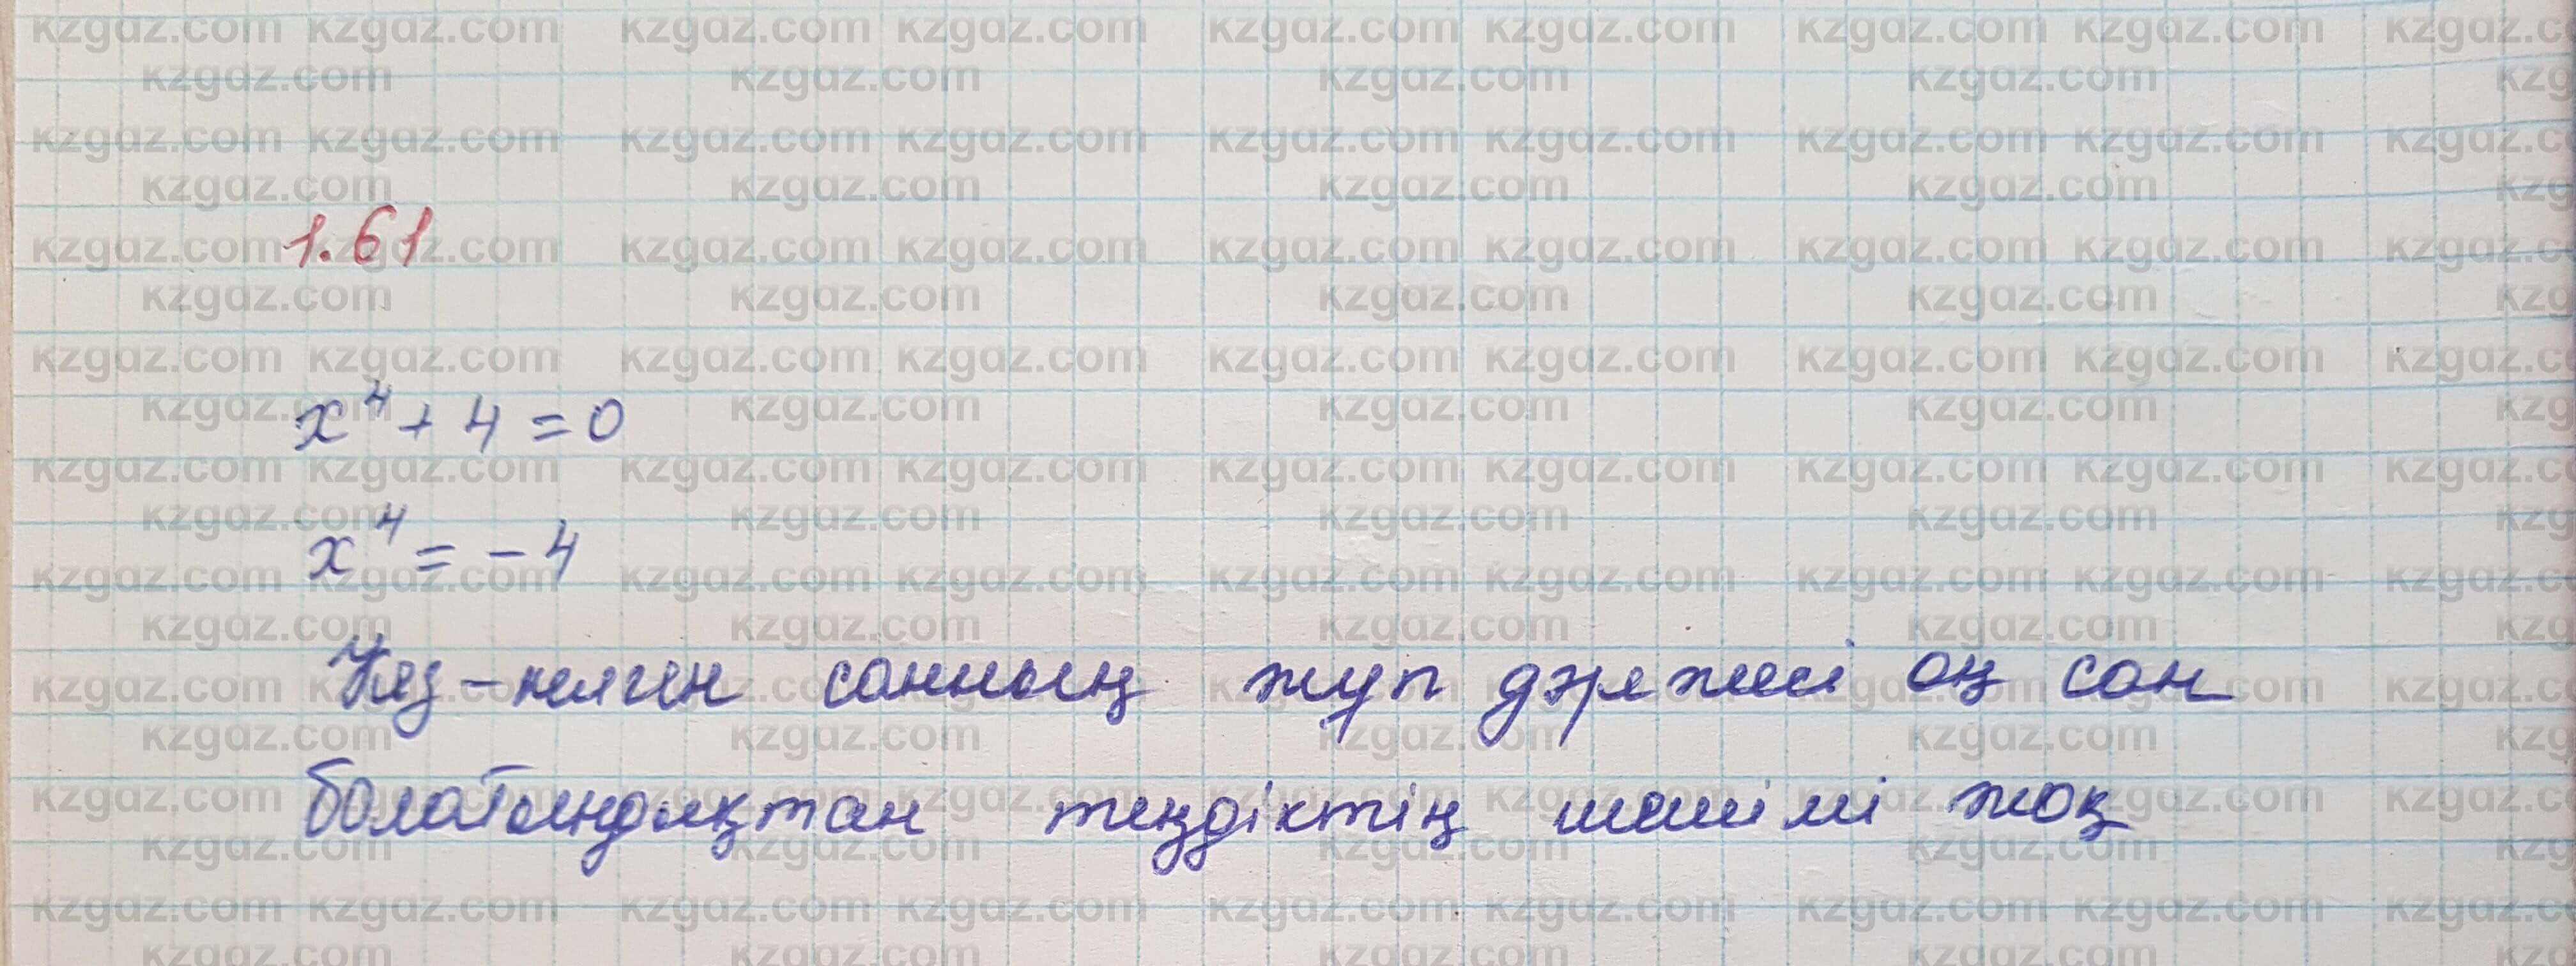 1.61
x⁴ + 4 = 0
x⁴ = - 4
Кез-келген санның жұп дәрежесі оң сан
болатындықтан теңдіктің шешімі жоқ